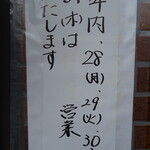 年内、28(月)、29(火)、30
(木)は
営業
たします